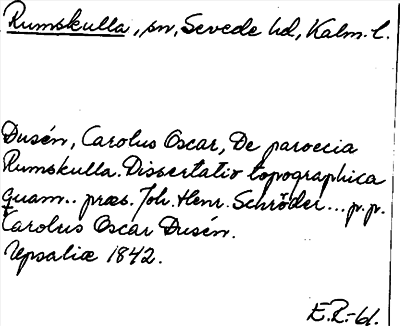 Rumskulla, sn, Sevede hd, Kalm. l.
Dusén, Carolus Oscar, De paroecia
Rumskulla. Dissertatio topographica
quam.. præs. Joh. Henr. Schröder... p.p.
Carolus Oscar Dusén.
Upsaliæ 1842.
E.R.-61.